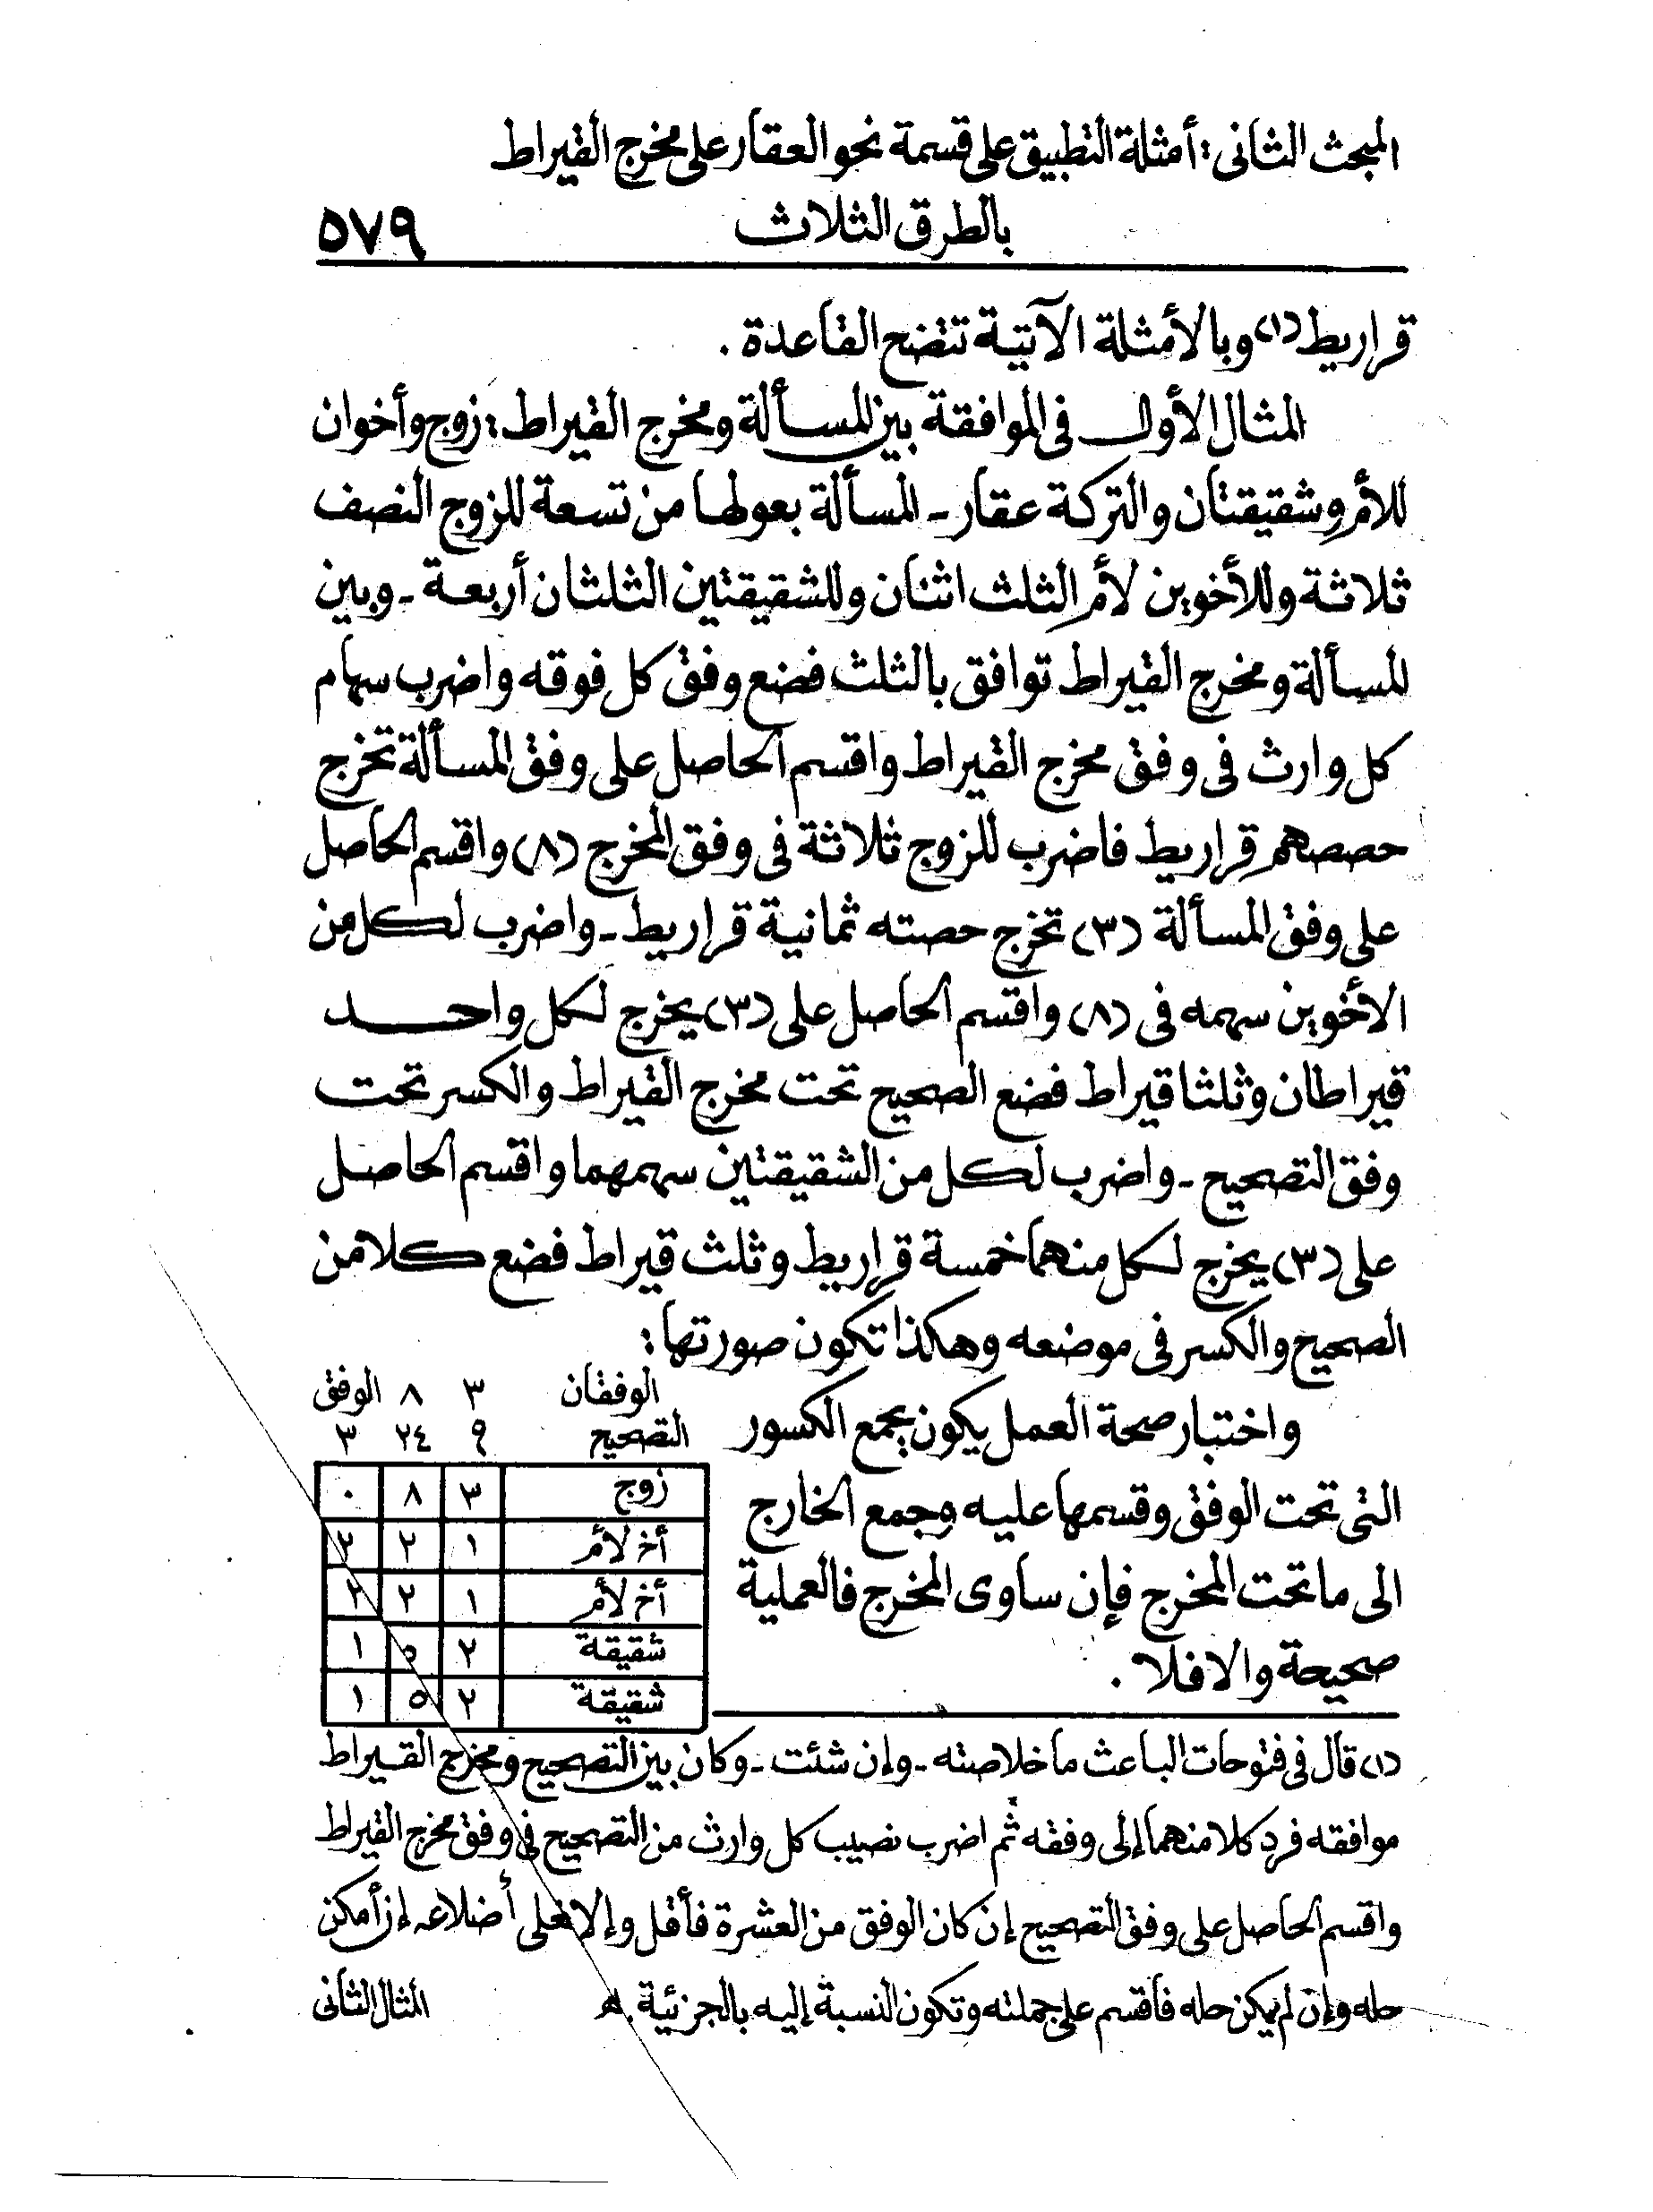 المبحث الثانى : أمثلة التطبيق على قسمة نحو العقار على مخرج القيراط
بالطرق الثلاث
٥٧٩
قراريط (١) وبالأمثلة الآتية تتضح القاعدة .
المثال الأول فى الموافقة بين المسألة ومخرج القيراط : زوج وأخوان
للأم وشقيقتان والتركة عقار - المسألة بعولها من تسعة للزوج النصف
ثلاثة وللأخوين لأم الثلث اثنان وللشقيقتين الثلثان أربعة - وبين
المسألة ومخرج القيراط توافق بالثلث فضع وفق كل فوقه واضرب سهام
كل وارث فى وفق مخرج القيراط واقسم الحاصل على وفق المسألة تخرج
حصصهم قراريط فاضرب للزوج ثلاثة فى وفق المخرج (٨) واقسم الحاصل
على وفق المسألة (٣) تخرج حصته ثمانية قراريط - واضرب لكل من
الأخوين سهمه فى (٨) واقسم الحاصل على (٣) يخرج لكل واحد
قيراطان وثلثا قيراط فضع الصحيح تحت مخرج القيراط والكسر تحت
وفق التصحيح - واضرب لكل من الشقيقتين سهمهما واقسم الحاصل
على (٣) يخرج لكل منهما خمسة قراريط وثلث قيراط فضع كلا من
الصحيح والكسر فى موضعه وهكذا تكون صورتها :
واختبار صحة العمل يكون بجمع الكسور
التى تحت الوفق وقسمها عليه وجمع الخارج
الى ما تحت المخرج فإن ساوى المخرج فالعملية
صحيحة والا فلا .
الوفقان ٣ ٨ الوفق
التصحيح ٩ ٢٤ ٣
زوج ٣ ٨ ٠
أخ لأم ١ ٢ ٢
أخ لأم ١ ٢ ٢
شقيقة ٢ ٥ ١
شقيقة ٢ ٥ ١
(١) قال فى فتوحات الباعث ما خلاصته - وإن شئت - وكان بين التصحيح ومخرج القيراط
موافقه فرد كلا منهما إلى وفقه ثم اضرب نصيب كل وارث من التصحيح فى وفق مخرج القيراط
واقسم الحاصل على وفق التصحيح إن كان الوفق من العشرة فأقل وإلا فعلى أضلاعه إن أمكن
حله وإن لم يمكن حله فأقسم على جملته وتكون النسبة إليه بالجزئية اهـ
المثال الثانى